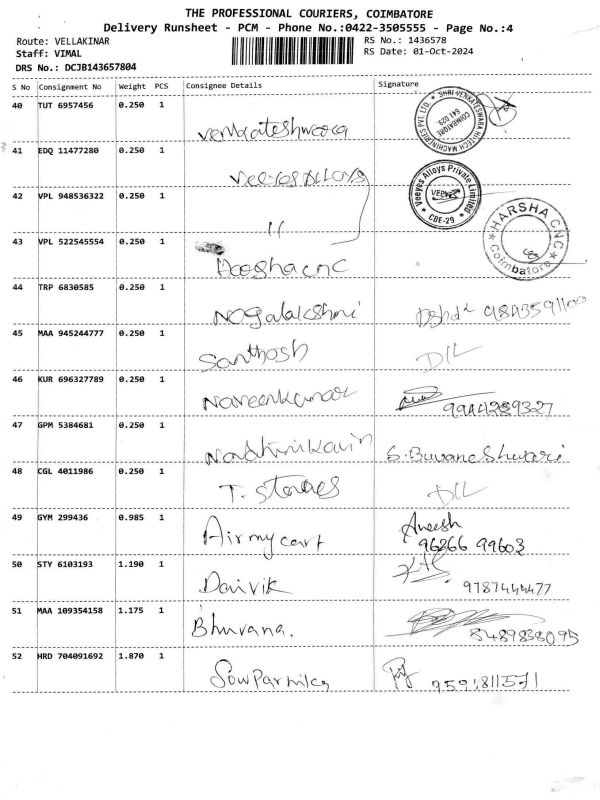 THE PROFESSIONAL COURIERS, COIMBATORE
Delivery Runsheet - PCM - Phone No.:0422-3505555 - Page No.:4
Route: VELLAKINAR
RS No.: 1436578
Staff: VIMAL
RS Date: 01-Oct-2024
DRS No.: DCJB143657804
S No Consignment No Weight PCS Consignee Details Signature
40 TUT 6957456 0.250 1
SHRI VENKATESWARA HITECH MACHINERIES PVT. LTD. COIMBATORE 641 029.
41 EDQ 11477280 0.250 1 Veeyes Alloys
Veeyes Alloys Private Limited VEEYES CBE-29
42 VPL 948536322 0.250 1 11
HARSHA CNC Coimbatore
43 VPL 522545554 0.250 1
44 TRP 6830585 0.250 1
45 MAA 945244777 0.250 1 Santhosh D/L
46 KUR 696327789 0.250 1 Naveenkumar 9944289327
47 GPM 5384681 0.250 1 S. Buvaneshwari
48 CGL 4011986 0.250 1 T. Stones D/L
49 GYM 299436 0.985 1 Airmycart Aneesh
96266 99603
50 STY 6103193 1.190 1 Daivik 9787444477
51 MAA 109354158 1.175 1 Bhuvana. 8489838095
52 HRD 704091692 1.870 1 9591811571